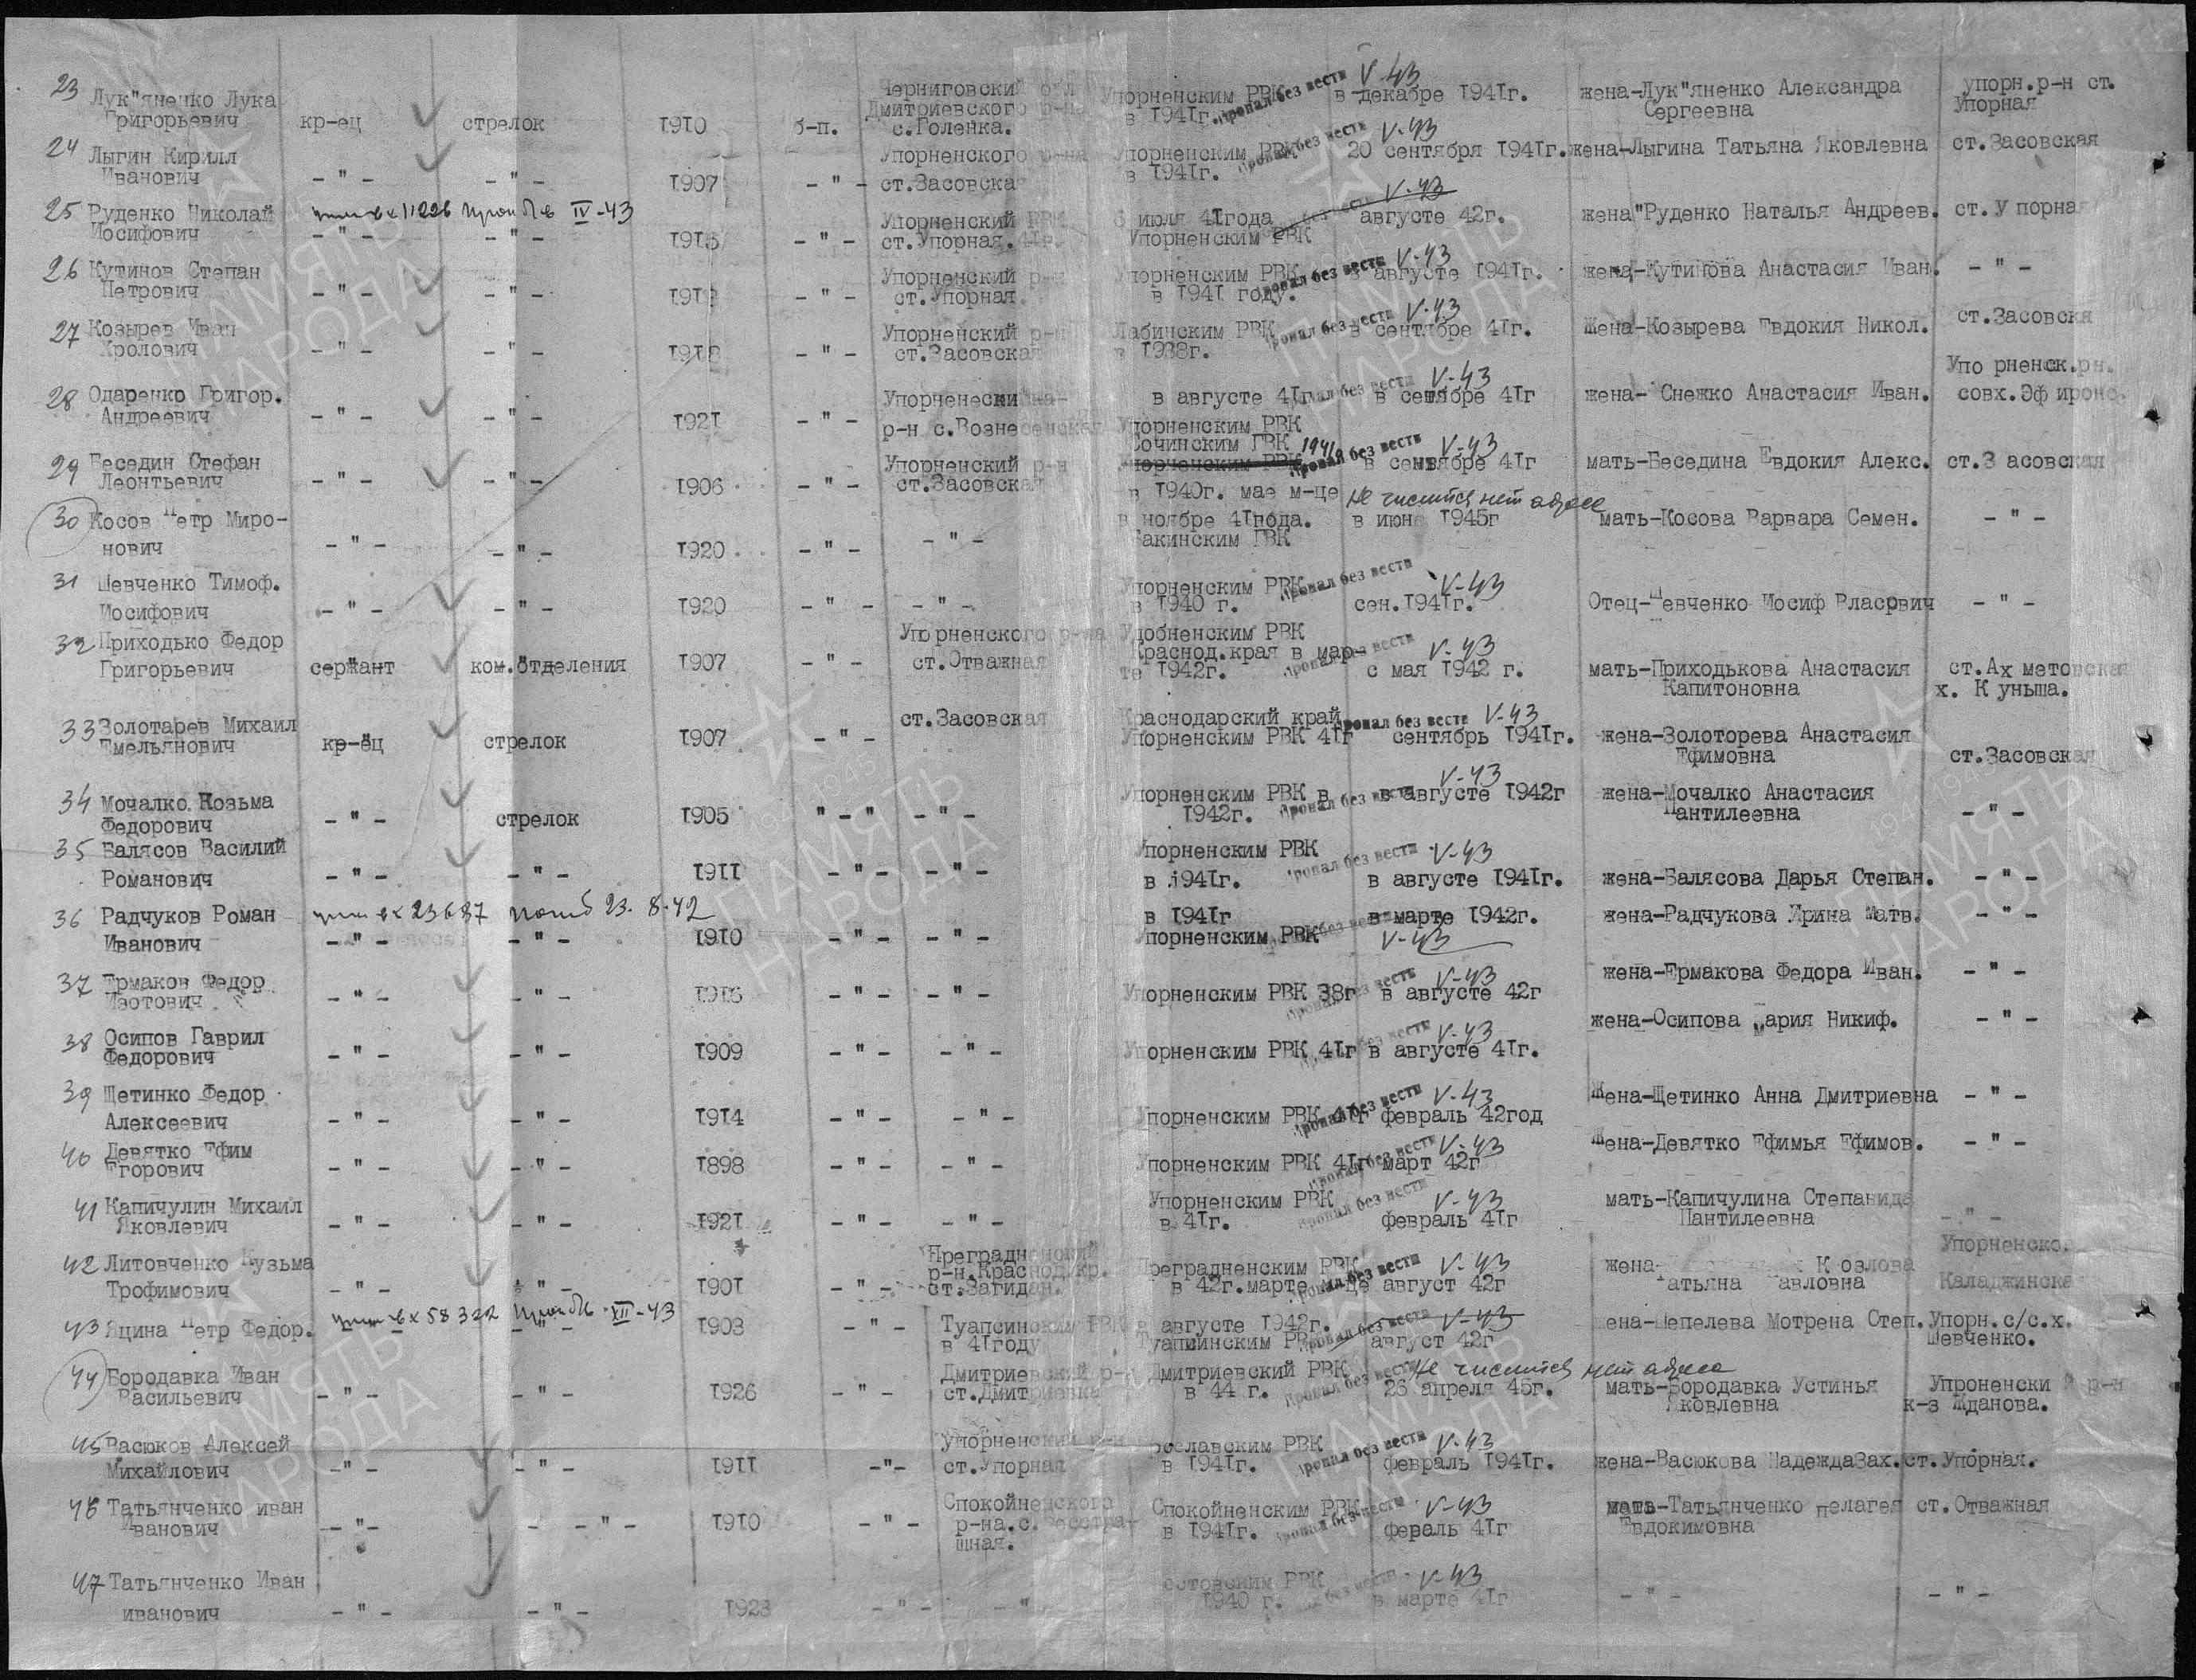 23 Лук"яненко Лука Григорьевич кр-ец стрелок 1910 б-п. Черниговский обл Дмитриевского р-на с.Голенка. Упорненским РВК в 1941г. Пропал без вести V-43 в декабре 1941г. жена-Лук"яненко Александра Сергеевна упорн.р-н ст. Упорная
24 Лыгин Кирилл Иванович -"- -"- 1907 -"- Упорненского р-на ст.Засовская Упорненским РВК в 1941г. Пропал без вести V-43 20 сентября 1941г. жена-Лыгина Татьяна Яковлевна ст.Засовская
25 Руденко Николай Иосифович -"- -"- IV-43 -"- Упорненский РВК ст.Упорная. 6 июля 41года Упорненским РВК V-43 августе 42г. жена"Руденко Наталья Андреев. ст.У порная
26 Кутинов Степан Петрович -"- -"- -"- Упорненский р-н ст.Упорная. Упорненским РВК в 1941 году. Пропал без вести V-43 августе 1941г. жена-Кутинова Анастасия Иван. -"-
27 Козырев Иван Фролович -"- -"- 1918 -"- Упорненский р-н ст.Засовская Лабинским РВК в 1938г. Пропал без вести V-43 в сентябре 41г. Жена-Козырева Евдокия Никол. ст.Засовская
28 Одаренко Григор. Андреевич -"- -"- 1921 -"- р-н с.Вознесенская в августе 41г Упорненским РВК Пропал без вести V-43 в сентябре 41г жена- Снежко Анастасия Иван. Упо рненск.рн. совх.Эф иронос.
29 Беседин Стефан Леонтьевич -"- -"- 1906 -"- Упорненский р-н ст.Засовская Сочинским ГВК 1941 Упорненским РВК в 1940г. мае м-це Пропал без вести V-43 в сентябре 41г мать-Беседина Евдокия Алекс. ст.З асовская
30 Косов Петр Миро-
нович -"- -"- 1920 -"- -"- в ноябре 41года. Бакинским ГВК Не числится нет адреса в июне 1945г мать-Косова Варвара Семен. -"-
31 Шевченко Тимоф. Иосифович -"- -"- 1920 -"- -"- Упорненским РВК в 1940 г. Пропал без вести V-43 сен.1941г. Отец-Шевченко Иосиф Власович -"-
32 Приходько Федор Григорьевич сержант ком.отделения 1907 -"- Упорненского р-на ст.Отважная Удобненским РВК Краснод.края в мар-
те 1942г. Пропал без вести V-43 с мая 1942 г. мать-Приходькова Анастасия Капитоновна ст.Ах метовская х. К уныша.
33 Золотарев Михаил Емельянович кр-ец стрелок 1907 -"- ст.Засовская Краснодарский край Упорненским РВК 41г Пропал без вести V-43 сентябрь 1941г. жена-Золоторева Анастасия Ефимовна ст.Засовская
34 Мочалко Козьма Федорович -"- стрелок 1905 "-" -"- Упорненским РВК в 1942г. Пропал без вести V-43 в августе 1942г жена-Мочалко Анастасия Пантилеевна -"-
35 Балясов Василий Романович -"- -"- 1911 -"- -"- Упорненским РВК в 1941г. Пропал без вести V-43 в августе 1941г. жена-Балясова Дарья Степан. -"-
36 Радчуков Роман Иванович -"- 23687 погиб 23.8.42 -"- 1910 -"- -"- в 1941г Упорненским РВК Пропал без вести V-43 в марте 1942г. жена-Радчукова Ирина Матв. -"-
37 Ермаков Федор Изотович -"- -"- 1916 -"- -"- Упорненским РВК 38г Пропал без вести V-43 в августе 42г жена-Ермакова Федора Иван. -"-
38 Осипов Гаврил Федорович -"- -"- 1909 -"- -"- Упорненским РВК 41г Пропал без вести V-43 в августе 41г. жена-Осипова Мария Никиф. -"-
39 Щетинко Федор Алексеевич -"- -"- 1914 -"- -"- Упорненским РВК 41г Пропал без вести V-43 февраль 42год Жена-Щетинко Анна Дмитриевна -"-
40 Девятко Ефим Егорович -"- -"- 1898 -"- -"- Упорненским РВК 41г Пропал без вести V-43 март 42г Жена-Девятко Ефимья Ефимов. -"-
41 Капичулин Михаил Яковлевич -"- -"- 1921 -"- -"- Упорненским РВК в 41г. Пропал без вести V-43 февраль 41г мать-Капичулина Степанида Пантилеевна -"-
42 Литовченко Кузьма Трофимович -"- -"- 1901 -"- р-н.Краснод.кр. Преградненским РВК в 42г.марте м-це Пропал без вести V-43 август 42г жена- Козлова Татьяна Павловна Упорненско. Каладжинска
43 Яцина Петр Федор. 58322 XII-43 -"- 1903 -"- Туапсинским РВК в 41году в августе 1942г. Туапсинским РВК Пропал без вести V-43 август 42г жена-Шепелева Мотрена Степ. Упорн.с/с.х. Шевченко.
44 Бородавка Иван Васильевич -"- -"- 1926 -"- Дмитриевский р-н ст.Дмитриевка Дмитриевский РВК в 44 г. Пропал без вести Не числится нет адреса 26 апреля 45г. мать-Бородавка Устинья Яковлевна Упроненски й р-н к-з Жданова.
45 Васюков Алексей Михайлович -"- -"- 1911 -"- Упорненский р-н ст.Упорная РВК в 1941г. Пропал без вести V-43 февраль 1941г. жена-Васюкова НадеждаЗах. ст.Упорная.
46 Татьянченко иван Иванович -"- - -"- 1910 -"- Спокойненского р-на.с. Бесстра-
шная. Спокойненским РВК в 1941г. Пропал без вести V-43 фераль 41г мать-Татьянченко пелагея Евдокимовна ст.Отважная
47 Татьянченко Иван иванович -"- -"- 1923 -"- -"- РВК 1940 г. без вести V-43 в марте 41г -"- -"-
ПАМЯТЬ НАРОДА
1941 1945